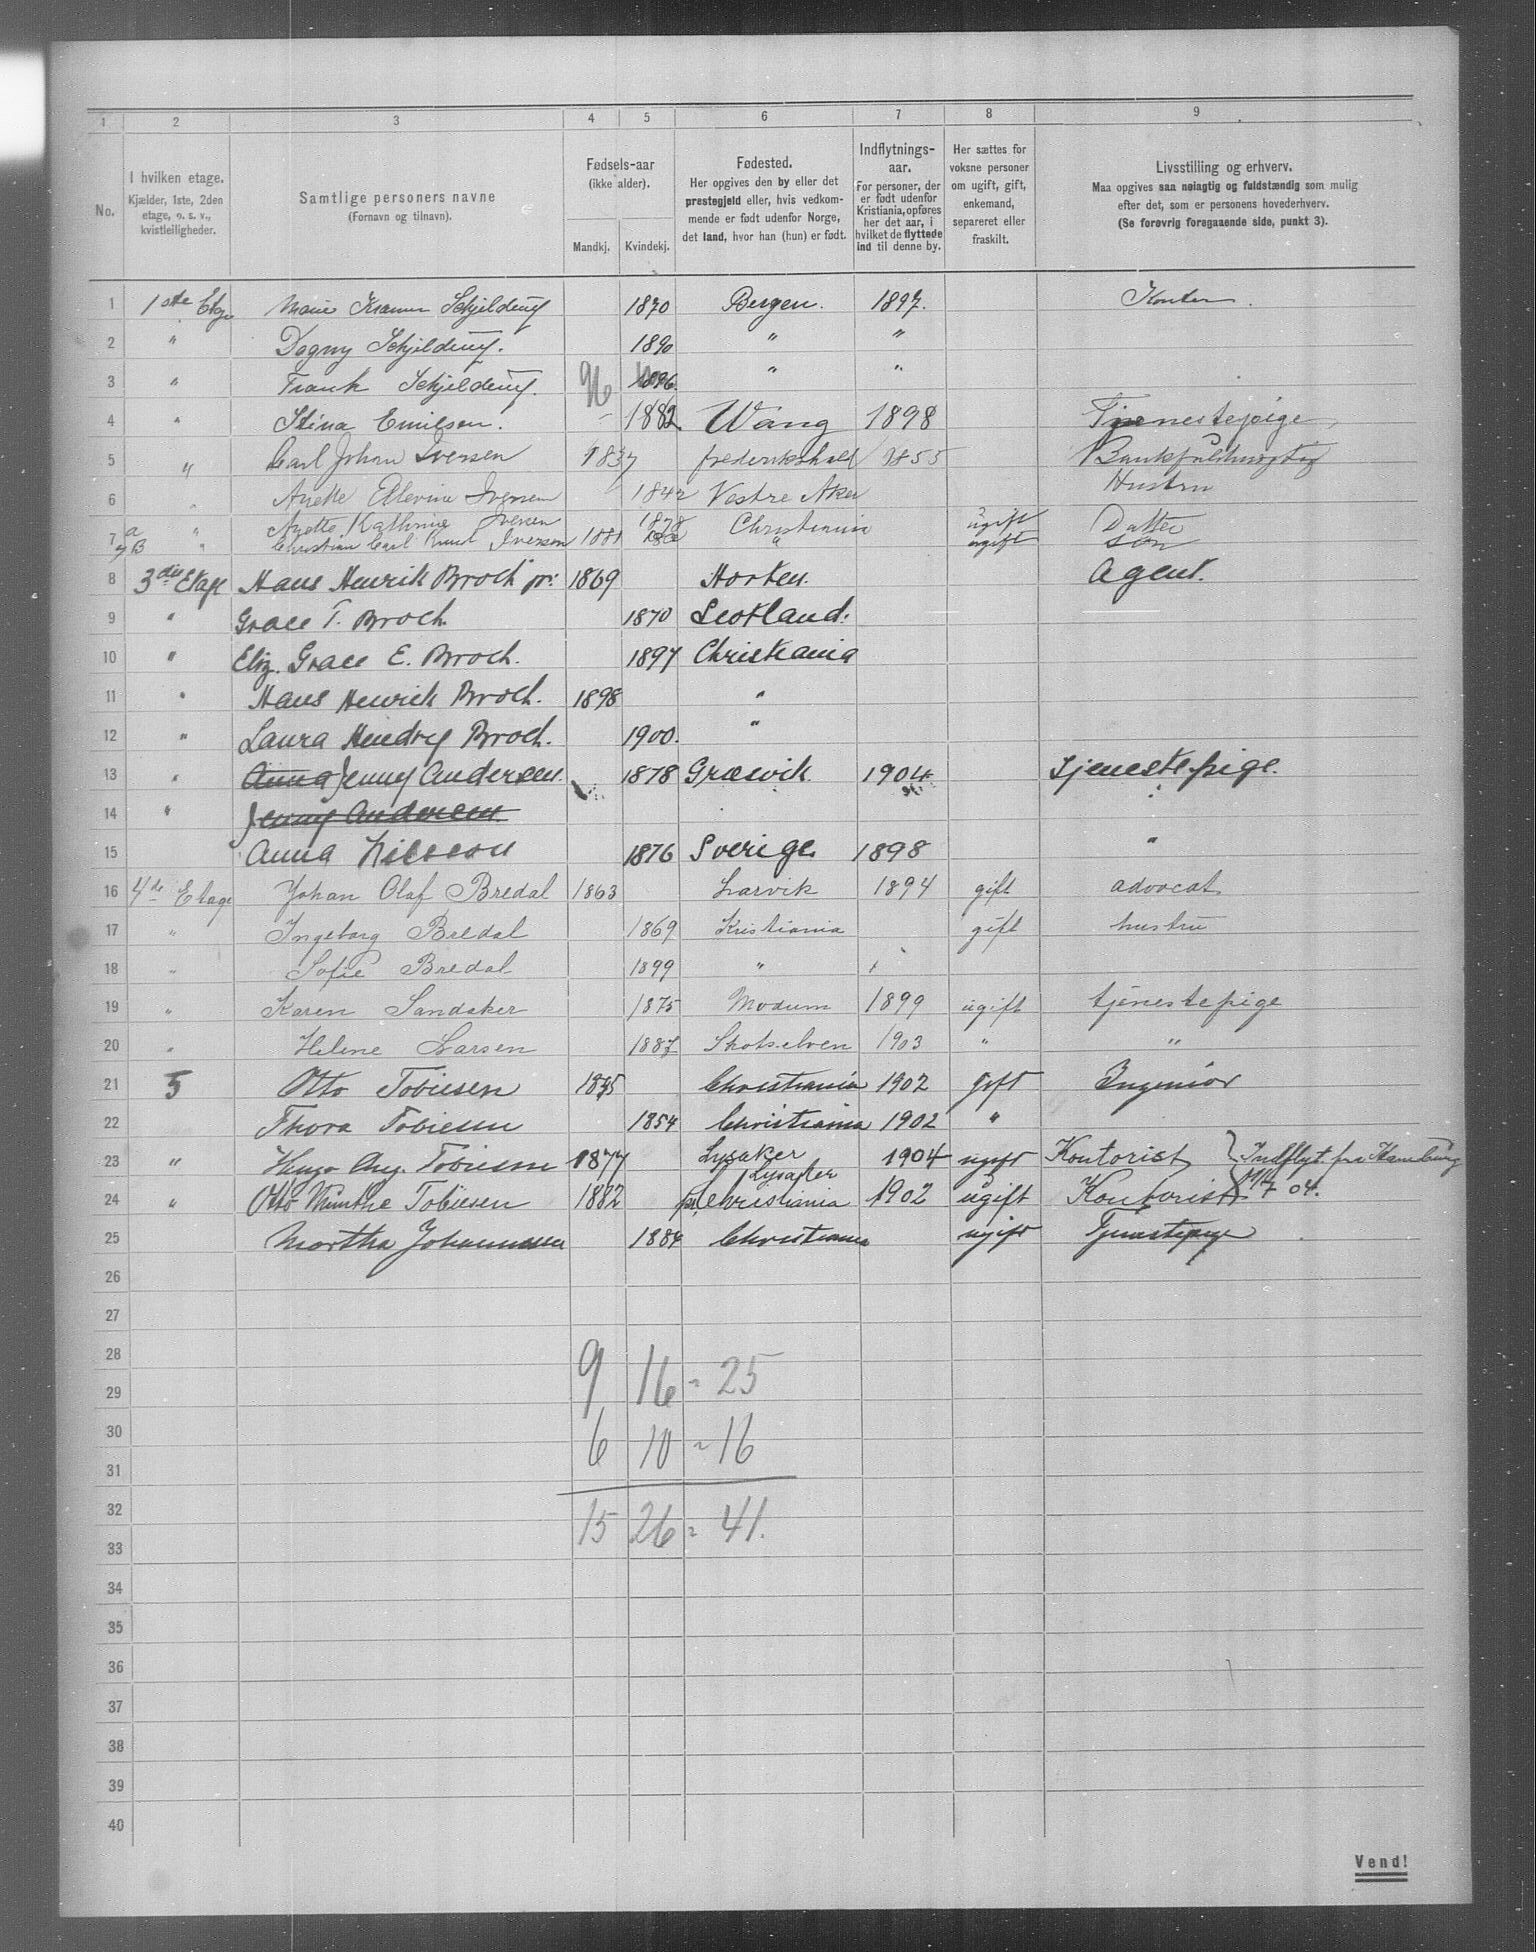 1 2 3 4 5 6 7 8 9
No.
I hvilken etage.
Kjælder, 1ste, 2den
etage, o. s. v.,
kvistleiligheder.
Samtlige personers navne
(Fornavn og tilnavn).
Fødsels-aar
(ikke alder).
Mandkj. Kvindekj.
Fødested.
Her opgives den by eller det
prestegjeld eller, hvis vedkom-
mende er født udenfor Norge,
det land, hvor han (hun) er født.
Indflytnings-
aar.
For personer, der
er født udenfor
Kristiania, opføres
her det aar, i
hvilket de flyttede
ind til denne by.
Her sættes for
voksne personer
om ugift, gift,
enkemand,
separeret eller
fraskilt.
Livsstilling og erhverv.
Maa opgives saa nøiagtig og fuldstændig som mulig
efter det, som er personens hovederhverv.
(Se forøvrig foregaaende side, punkt 3).
1 1ste Etge Marie Kramer Schjelderup 1870 Bergen. 1897.
2 " Dagny Schjelderup. 1890 " "
3 " Frank Schjelderup. 96 1896. " "
4 " Stina Emilsen. 1882 Wang 1898 Tjenestepige
5 " Carl Johan Iversen 1837 frederikshald 1855
6 " Anette Elevine Iversen 1842 Vestre Aker Hustru
7 a " Anette Kathrine Iversen 1878 Christiania ugift Datter
7 B " Christian Carl Knud Iversen 1881 " ugift Søn
8 3die Etage Hans Henrik Broch jr: 1869 Horten. Agent.
9 " Grace T. Broch 1870 Scotland.
10 " Eliz. Grace E. Broch. 1897 Christiania
11 " Hans Henrich Broch. 1898 "
12 " Laura Hendry Broch. 1900. "
13 " Anna Jenny Andersen. 1878 Græsvik 1904 Tjenestepige.
14 " Jenny Andersen.
15 Anna Nilsson 1876 Sverige 1898 "
16 4de Etage Johan Olaf Bredal 1863 Larvik 1894 gift advocat
17 " Ingeborg Bredal 1869 Kristiania gift hustru
18 " Sofie Bredal 1899 "
19 " Karen Sandaker 1875 Modum 1899 ugift tjenestepige
20 " Helene Larsen 1887 Skotselven 1903 " "
21 5 Otto Tobiesen 1835 Christiania 1902 gift Ingeniør
22 Thora Tobiesen 1854 Christiania 1902 "
23 " Hugo Aug. Tobiesen 1877 Lysaker 1904 ugift Kontorist } Indflyt. fra Hamburg
24 " Otto Munthe Tobiesen 1882 Lysaker Christiania 1902 ugift Kontorist 11/7 04.
25 Martha Johannessen 1884 Christiania ugift Tjenestepige
26
27
28
29
30
31
32
33
34
35
36
37
38
39
40
9 16 = 25
6 10 = 16
15 26 = 41.
Vend!